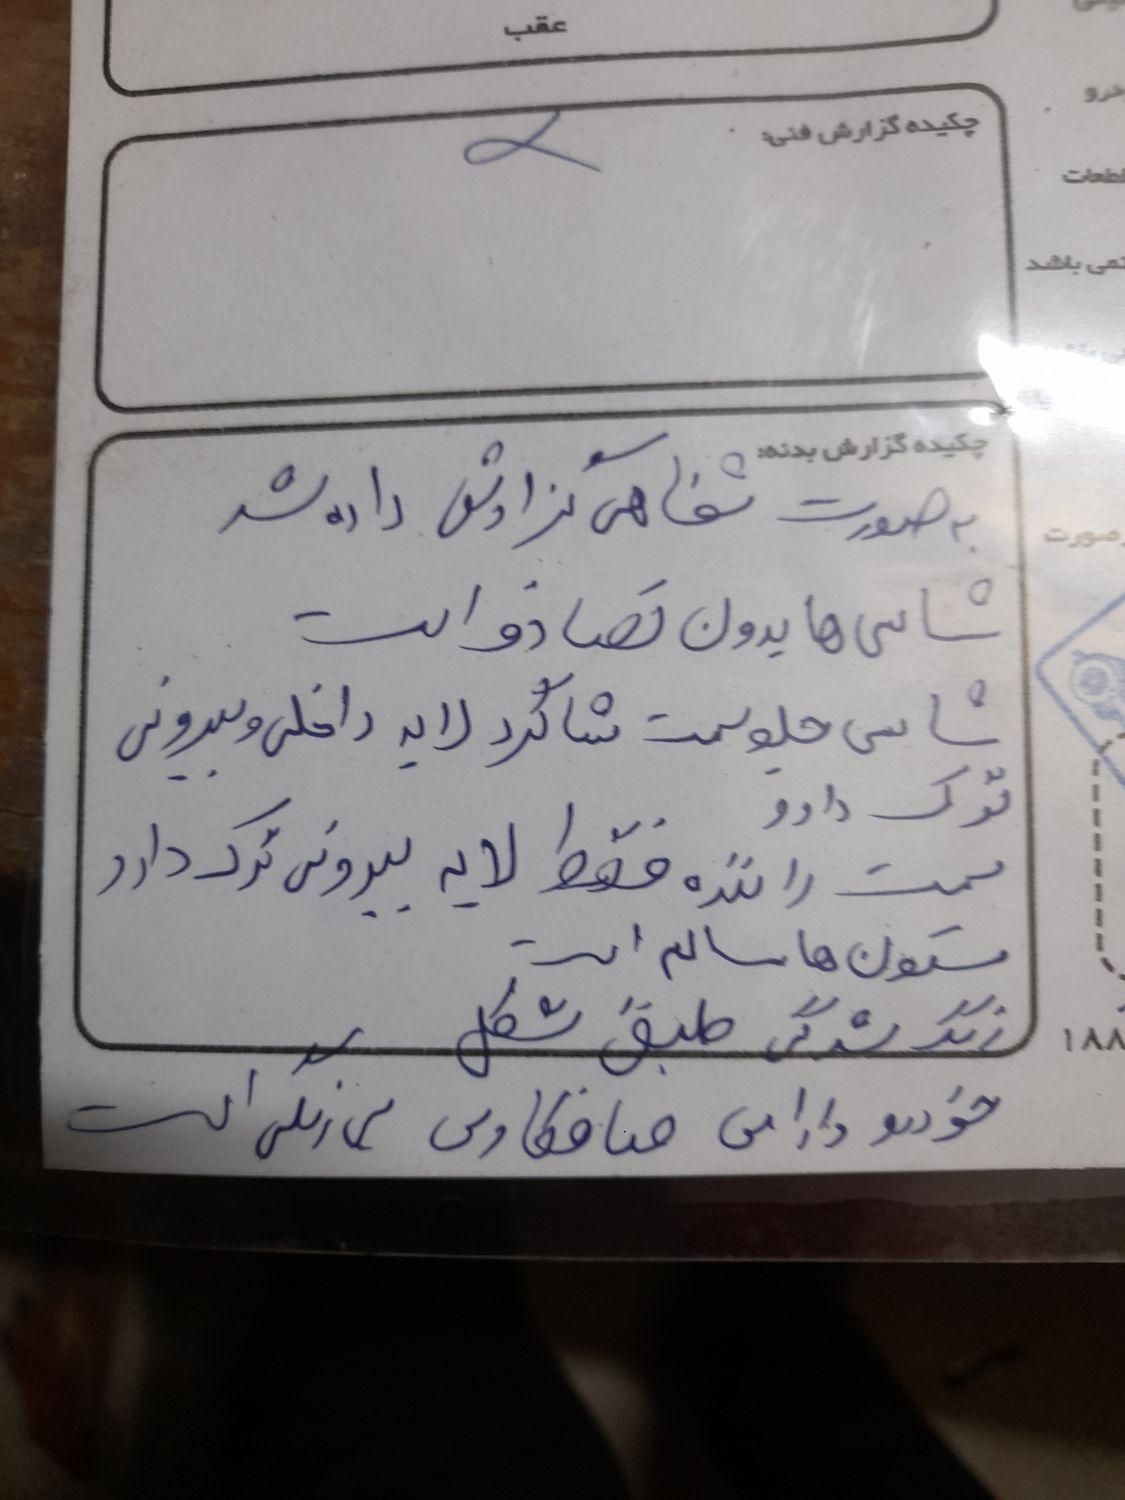 عقب
درو
چکیده گزارش فنی:
قطعات
نمی باشد
چکیده گزارش بدنه:
به صورت شفاهی گزارش داده شد
صورت
شاسی ها بدون تصادف است
شاسی جلو سمت شاگرد لایه داخلی و بیرونی
ترک دارد
سمت راننده فقط لایه بیرونی ترک دارد
ستون ها سالم است
رنگ شدگی طبق شکل
۱۸۸
خودرو دارای صافکاری بی رنگ است